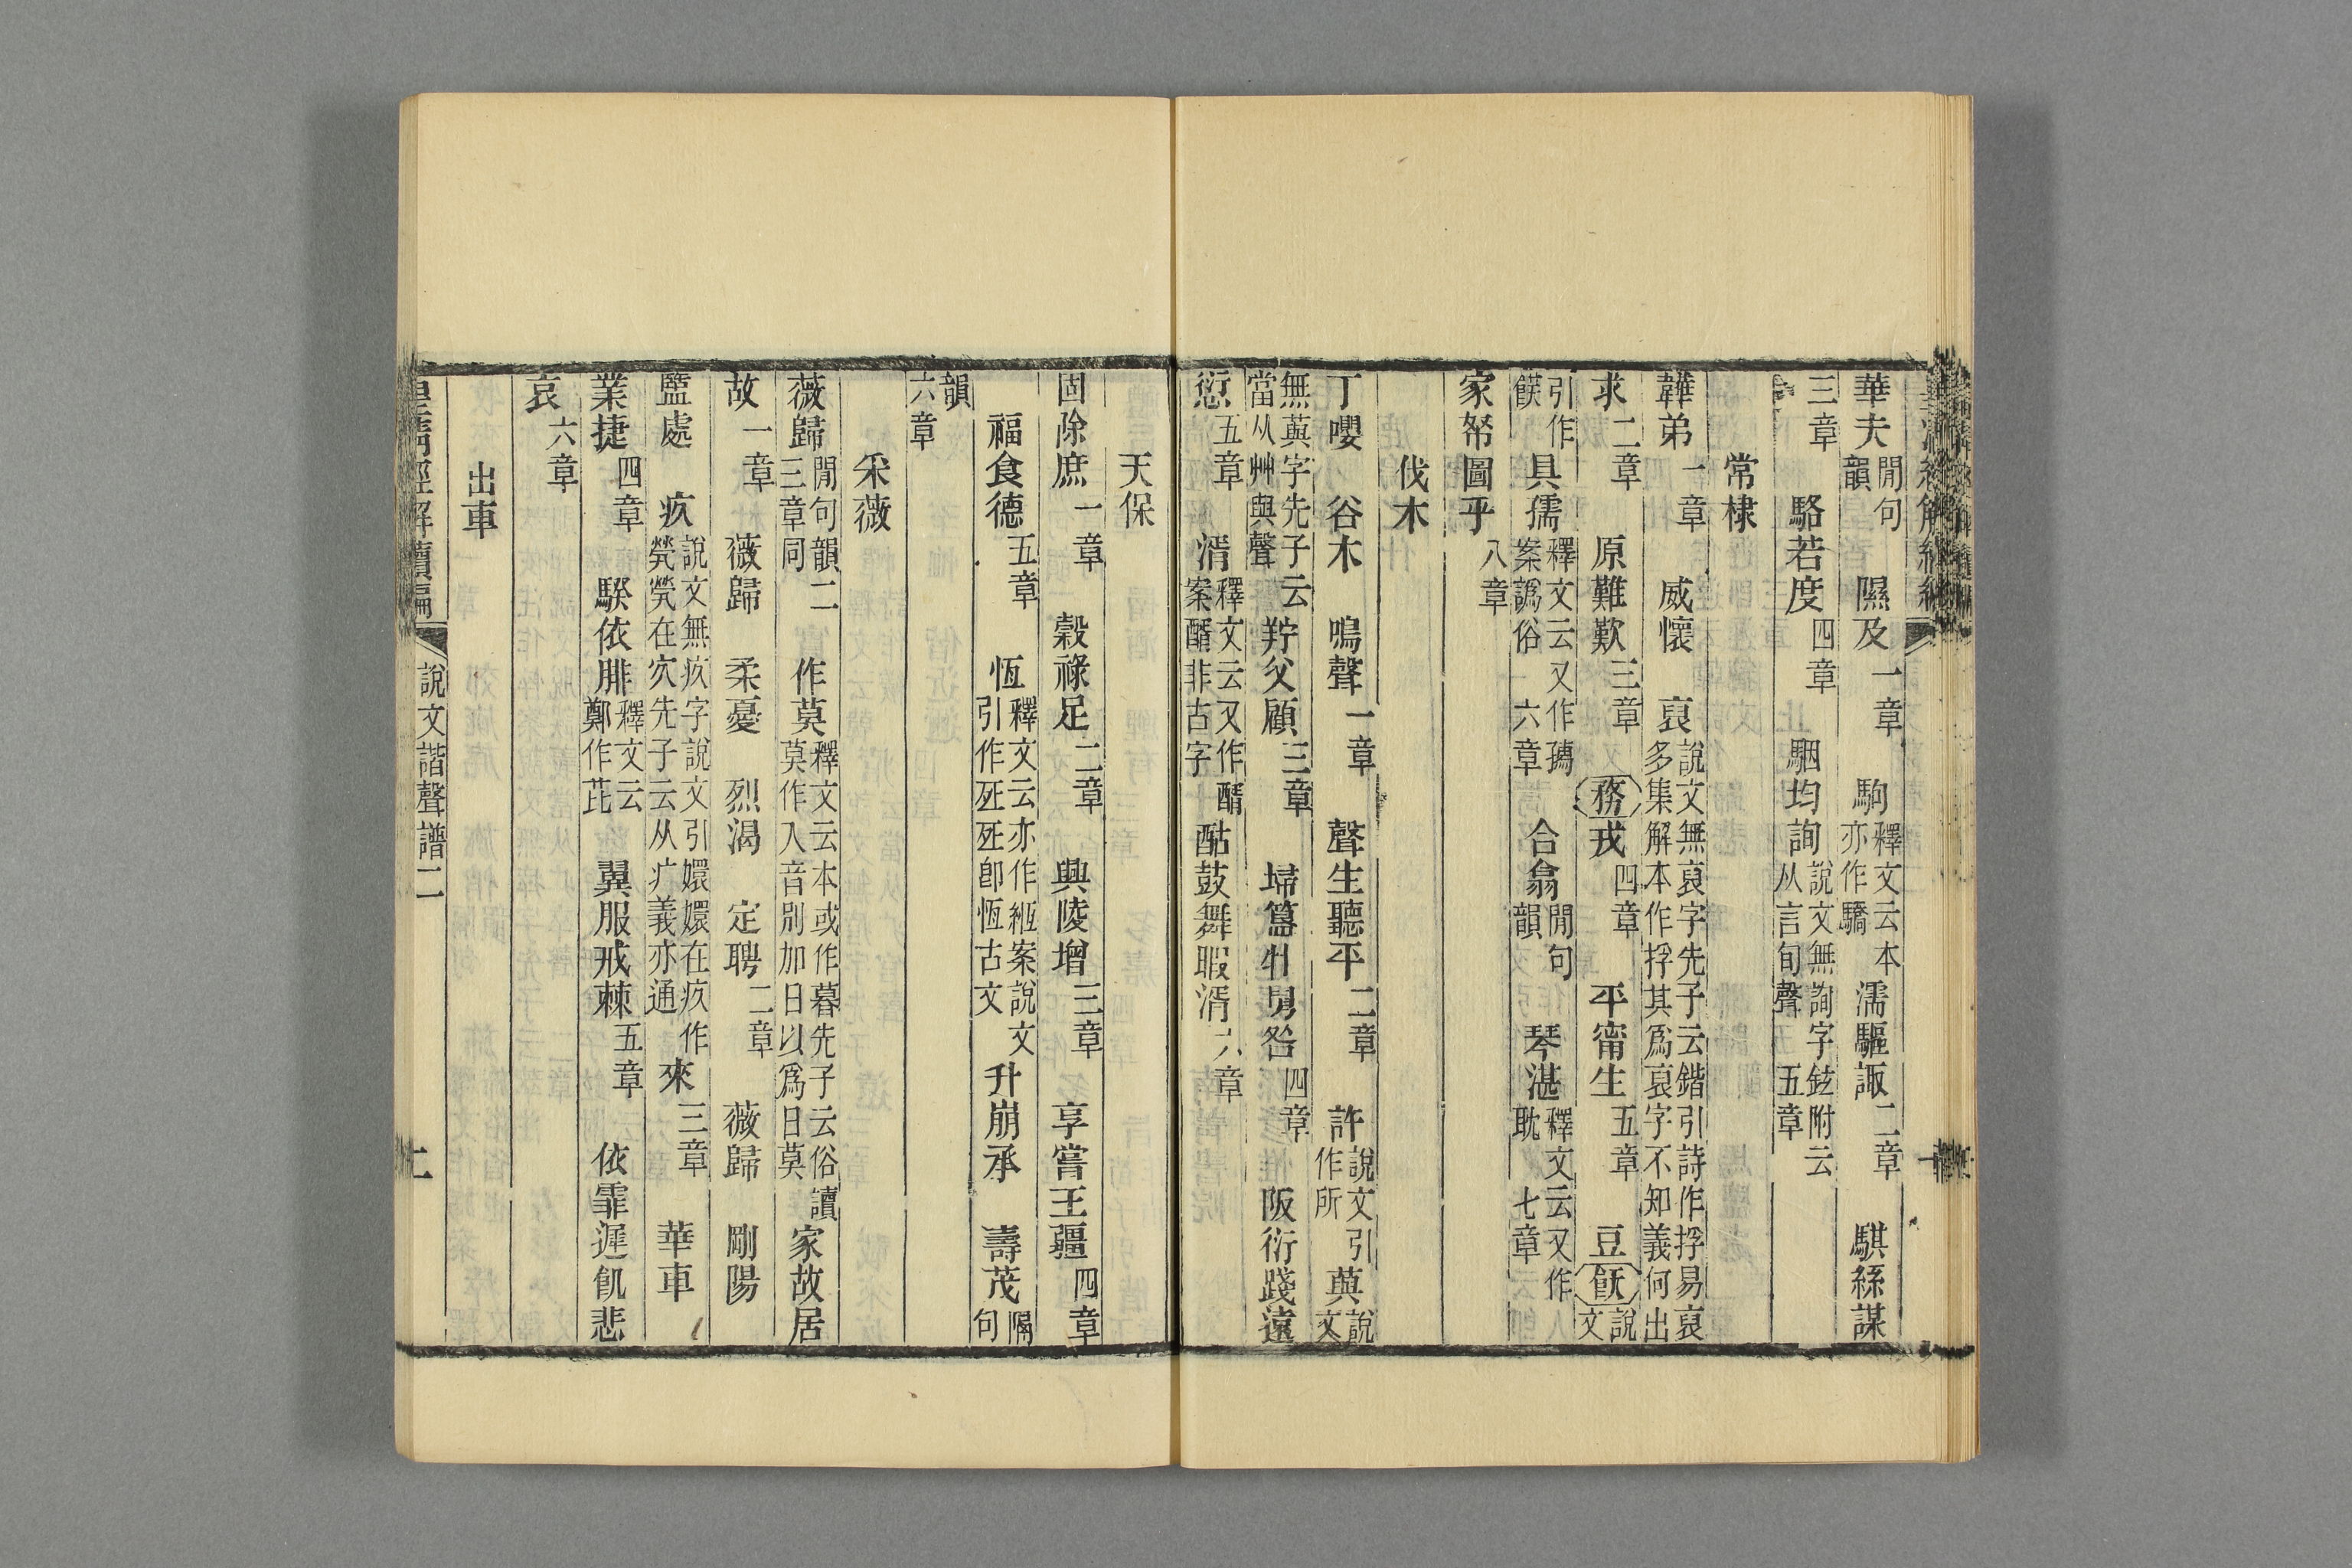 華夫閒句韻　隰及一章　駒釋文云本亦作驕濡驅諏二章　騏絲謀
三章　駱若度四章　駰均詢說文無詢字鉉附云从言旬聲五章
常棣
韡弟一章　威懷　裒說文無裒字先子云鍇引詩作捊易裒多集解本作捊其爲裒字不知義何出
求二章　原難歎三章　務戎四章　平甯生五章　豆飫說文
引作䬽　具孺釋文云又作𡦗案譌俗六章　合翕閒句韻　琴湛釋文云又作耽七章
家帑圖乎八章
伐木
丁嚶　谷木　鳴聲一章　聲生聽平二章　許說文引作所　藇說文
無藇字先子云當从艸與聲羜父顧三章　埽簋牡舅咎四章　阪衍踐遠
愆五章　湑釋文云又作醑案醑非古字　酤鼓舞暇湑六章
天保
固除庶一章　穀祿足二章　興陵增三章　享嘗王疆四章
福食德五章　恆釋文云亦作緪案說文引作死死卽恆古文　升崩承　壽茂隔句
韻六章
采薇
薇歸閒句韻二三章同　作莫釋文云本或作暮先子云俗讀莫作入音別加日以爲日莫　家故居
故一章　薇歸　柔憂　烈渴　定聘二章　薇歸　剛陽
盬處　疚說文無疚字說文引嬛嬛在疚作煢煢在㝌先子云从疒義亦通　來三章　華車
業捷四章　騤依腓釋文云鄭作芘　翼服戒棘五章　依霏遲飢悲
哀六章
出車
皇淸經解續編　說文諧聲譜二